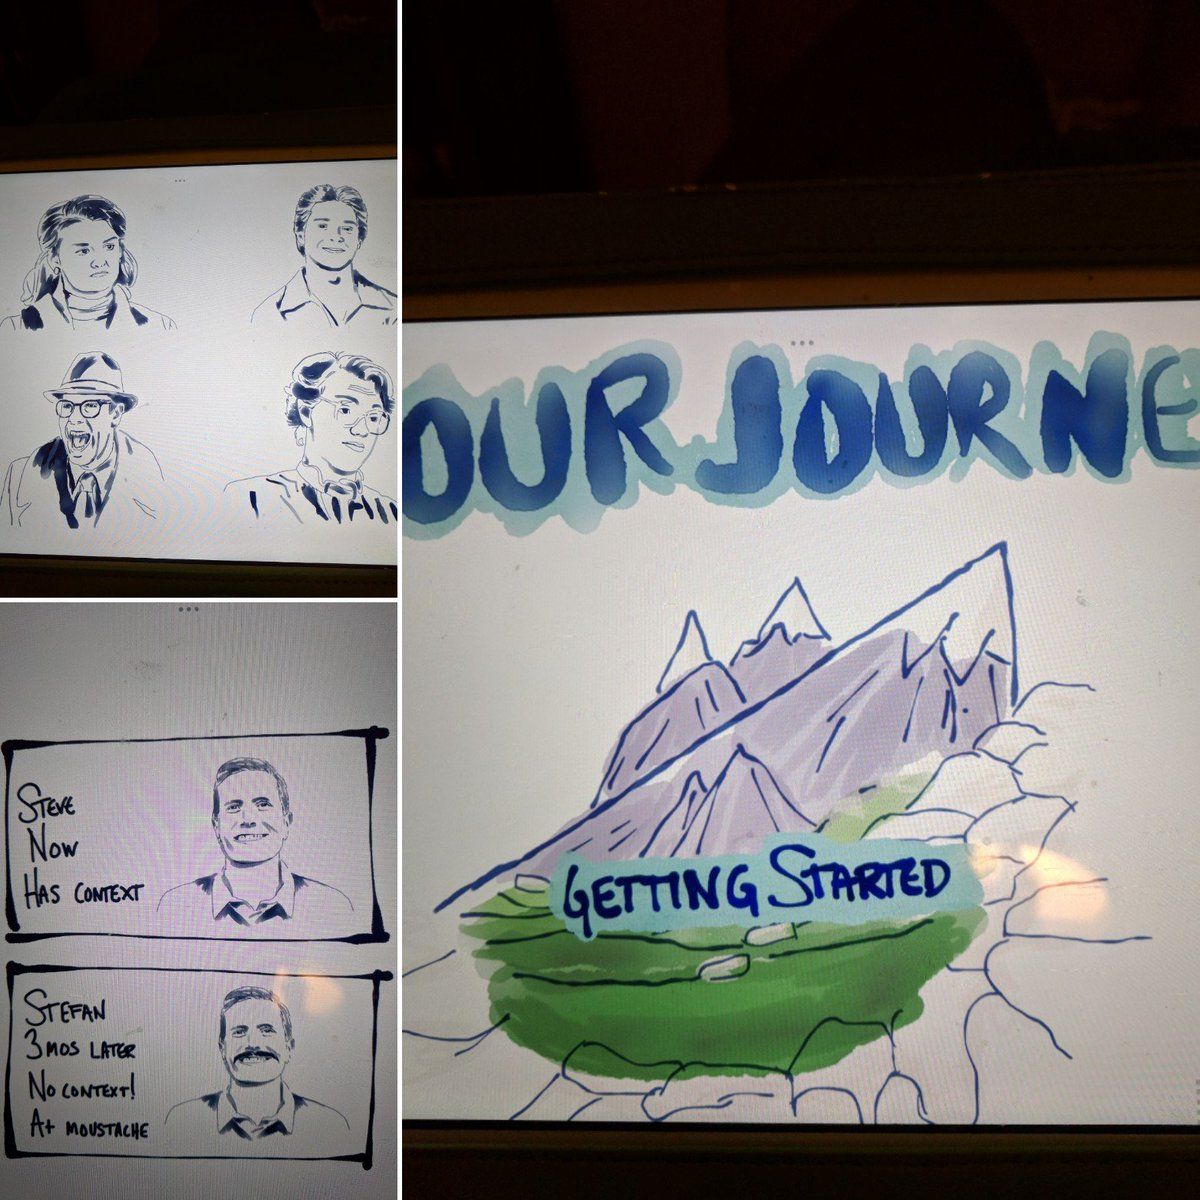 STEVE
NOW
HAS CONTEXT
STEFAN
3 MOS LATER
NO CONTEXT!
A+ MOUSTACHE
OUR JOURNE
GETTING STARTED